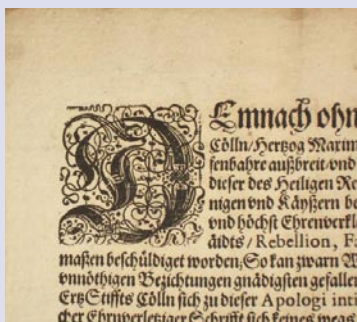 DEmnach ohn
Cölln/Hertzog Maxim
fenbahre außbreit-vnd
dieser des Heiligen Re
nigen vnd Käyßern be
vnd höchst Ehrenverkl
äidts/Rebellion, F
massen beschüldiget worden; So kan zwarn
vnnöthigen Bezichtungen gnädigsten gefallen
Ertz Stiffts Cölln sich zu dieser Apologi inti
cher Ehrnverletziger Schrifft sich keines weas